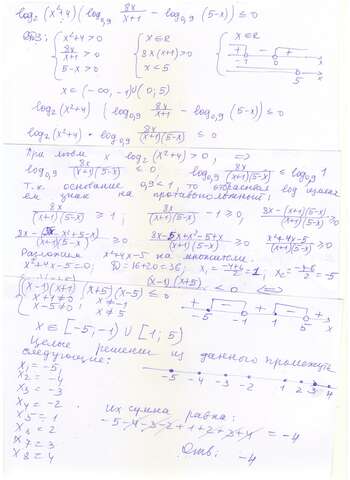 log₂(x²+4)(log₀,₉ 8x/(x+1) - log₀,₉ (5-x)) ≤ 0
ОДЗ: { x²+4>0 { x∈R { x∈R
8x/(x+1) > 0 8x(x+1)>0
5-x>0 x<5
+ - +
-1 0 x
5 x
x∈(-∞,-1)∪(0;5)
log₂(x²+4) (log₀,₉ 8x/(x+1) - log₀,₉(5-x)) ≤ 0
log₂(x²+4) • log₀,₉ 8x/((x+1)(5-x)) ≤ 0
При любом x log₂(x²+4)>0, <=>
log₀,₉ 8x/((x+1)(5-x)) ≤ 0, log₀,₉ 8x/((x+1)(5-x)) ≤ log₀,₉ 1
Т.к. основание 0,9<1, то
знак на противоположный:
8x/((x+1)(5-x)) ≥ 1, 8x/((x+1)(5-x)) - 1 ≥ 0, (8x-(x+1)(5-x))/((x+1)(5-x)) ≥ 0
≥ 0 (8x-5x+x²-5+x)/((x+1)(5-x)) ≥ 0 (x²+4x-5)/((x+1)(5-x)) ≥ 0
Разложим x²+4x-5 на множители.
x²+4x-5=0; D=16+20=36; x₁=(-4+6)/2=1; x₂=(-4-6)/2=-5
(x-1)(x+5)
(x-1)(x+1)(x+5)(x-5) ≤ 0 <=>
{ x+1≠0 { x≠-1
x-5≠0; x≠5
+ - + - +
-5 -1 1 5 x
x∈[-5;-1)∪[1;5)
Целые решения из данного промежутка
следующие:
-5 -4 -3 -2 1 2 3 4
x₁=-5,
x₂=-4
x₃=-3
x₄=-2
x₅=1
x₆=2
x₇=3
x₈=4
их сумма равна:
-5-4-3-2+1+2+3+4 = -4
Отв: -4